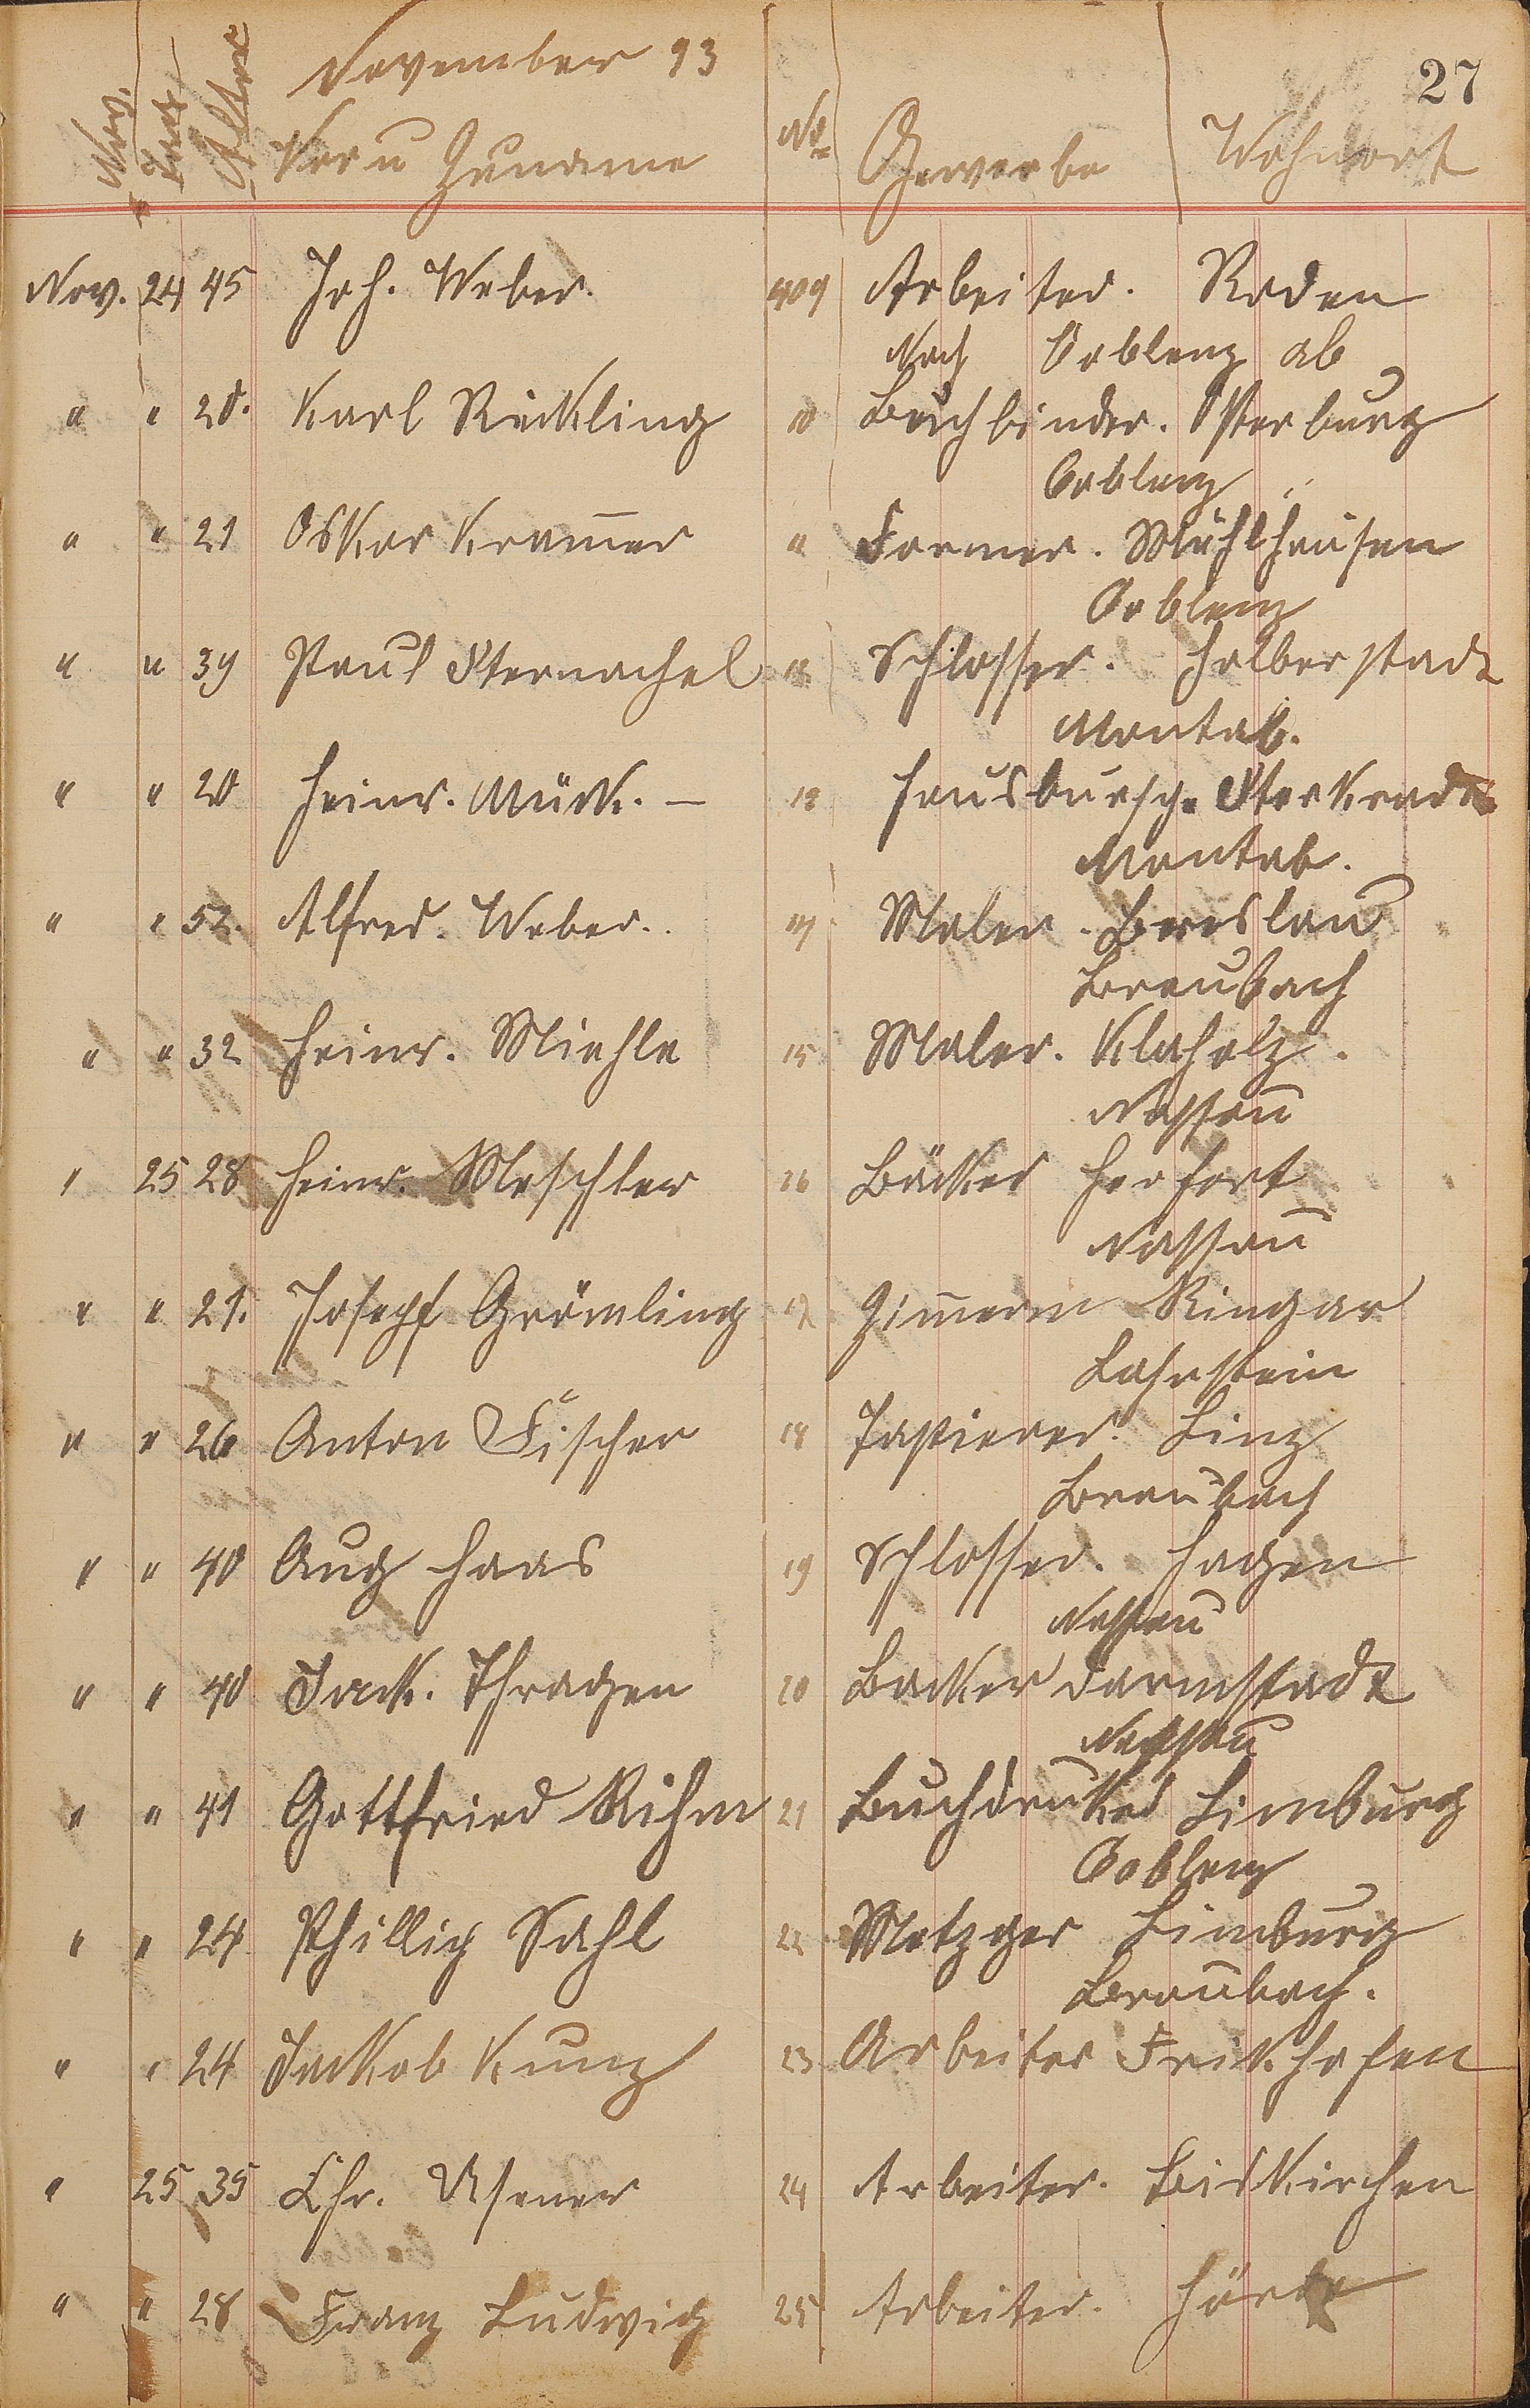 November 93
27
Nov. Dat Alter Vor u Zuname No Gewerbe Wohnort
Nov. 24 45 Joh. Weber. 409 Arbeiter. Roden
Nach Coblenz ab
" " 20. Karl Rickling 10 Buchbinder. Osterburg
Coblenz "
" " 21 Oskar Kram̄er 11 Former. Mühlhausen
Coblenz
" " 39 Paul Sternachel 12 Schlosser. Halberstadt
Montab.
" " 20 Heinr. Mück. – 13 Hausbursche Sterkrade
Montab.
" " 52. Alfred. Weber. 14 Maler. Breslau
Braubach
" " 32 Heinr. Miehle 15 Maler. Klaholz.
Nassau
" 25 28 Heinr. Meschter 16 Bäcker Herfort
Nassau
" " 21. Josepf Grömling 17 Zim̄erm
Lahnstein
" " 26 Anton Fischer 18 Tapierer. Linz
Braubach
" " 40 Aug Haas 19 Schlosser. Hagen
Nassau
" " 40 Jack. Thragen 20 Backer Darmstadt
Nassau
" " 41 Gottfried Rihm 21 Buchdruker Limburg
Coblenz
" " 24 Phillip Sahl 22 Metzger Limburg
Braubach.
" " 24 Jackob Kunz 23 Arbeiter Frikhofen
" 25 35 Chr. Usener 24 Arbeiter. Biskirchen
" " 28 Franz Ludwig 25 Arbeiter. Hörde